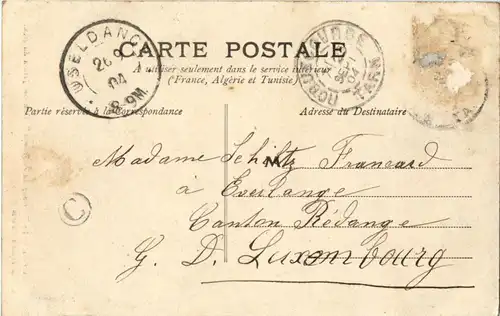 CARTE POSTALE
A utiliser seulement dans le service intérieur
(France, Algérie et Tunisie)
Partie réservée à la Correspondance
Adresse du Destinataire
USELDANGE
04
8-9M
TARN
04
C
Madame Schiltz Francard
à Everlange
Canton Rédange
G. D. Luxembourg